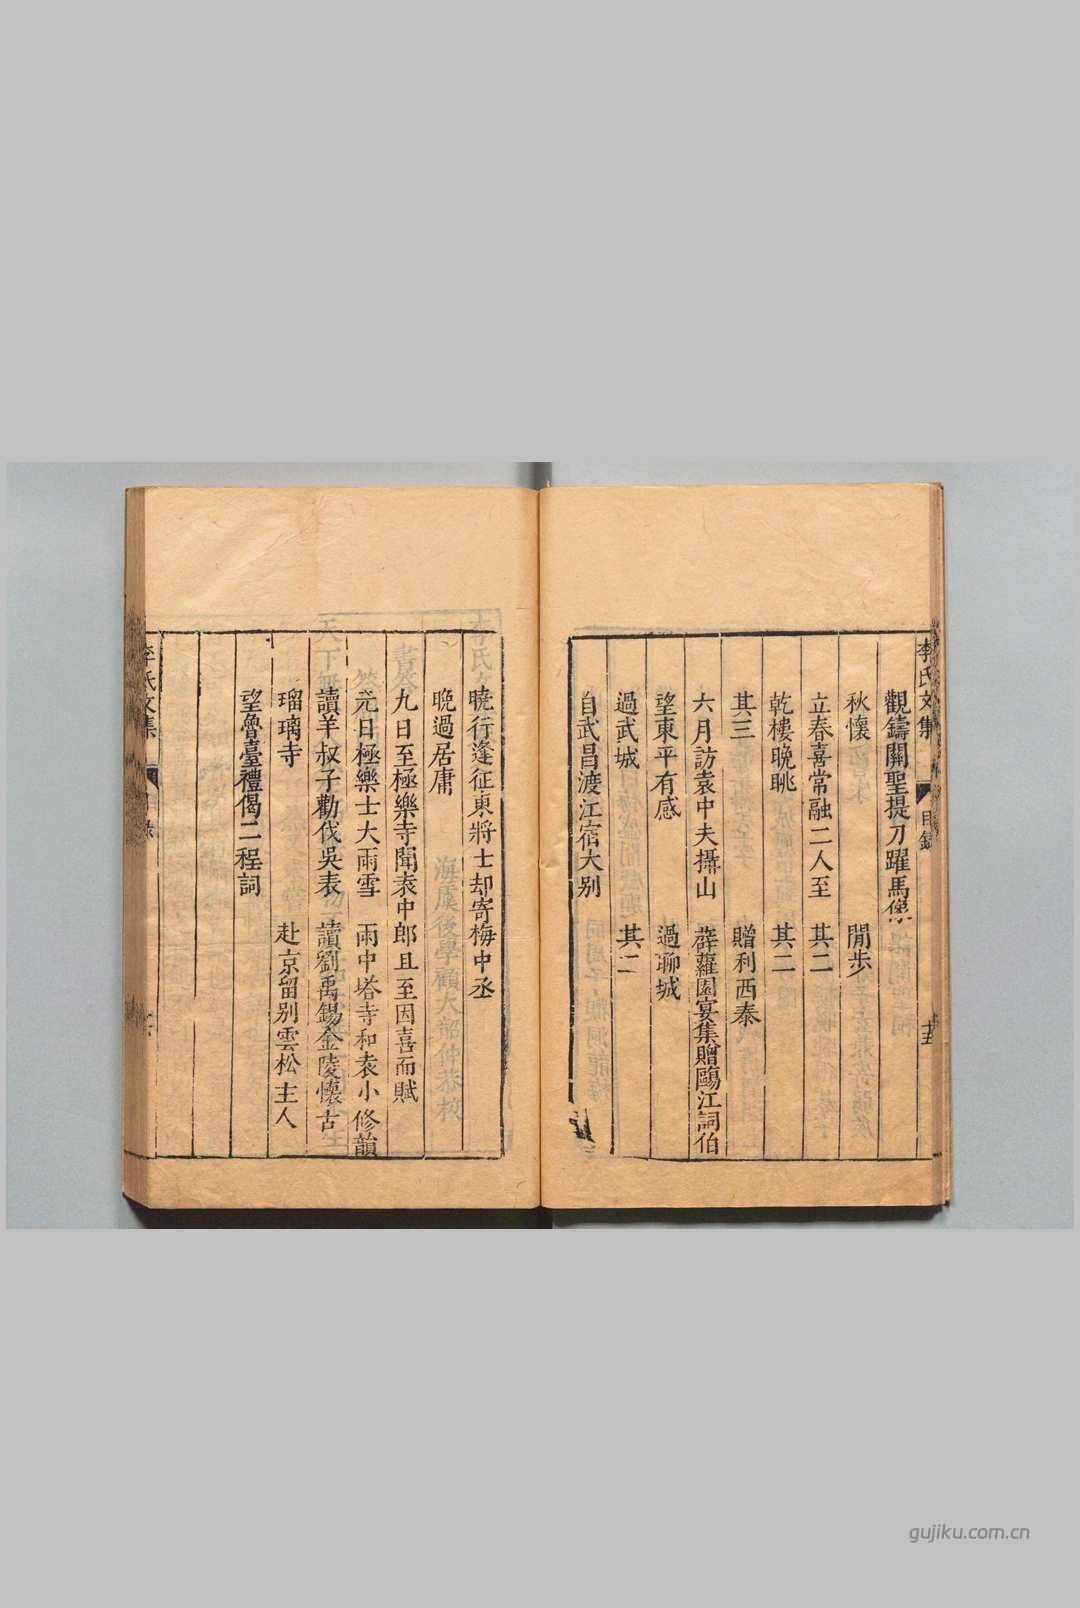 李氏文集 目錄
觀鑄關聖提刀躍馬像
秋懷 閒步
立春喜常融二人至 其二
乾樓晚眺 其二
其三 贈利西泰
六月訪袁中夫攝山 薜蘿園宴集贈鷗江詞伯
望東平有感 過聊城
過武城 其二
自武昌渡江宿大別
曉行逢征東將士却寄梅中丞
晚過居庸
九日至極樂寺聞袁中郎且至因喜而賦
元日極樂士大雨雪 雨中塔寺和袁小修韻
讀羊叔子勸伐吳表 讀劉禹錫金陵懷古
瑠璃寺 赴京留別雲松主人
望魯臺禮偈二程詞
李氏文集
gujiku.com.cn